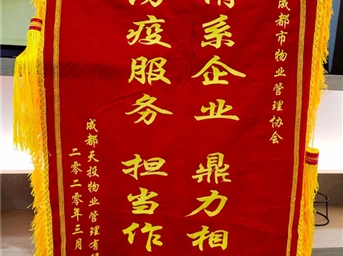 成都市物业管理协会
情系企业 鼎力相
防疫服务 担当作
成都天投物业管理有
二零二零年三月